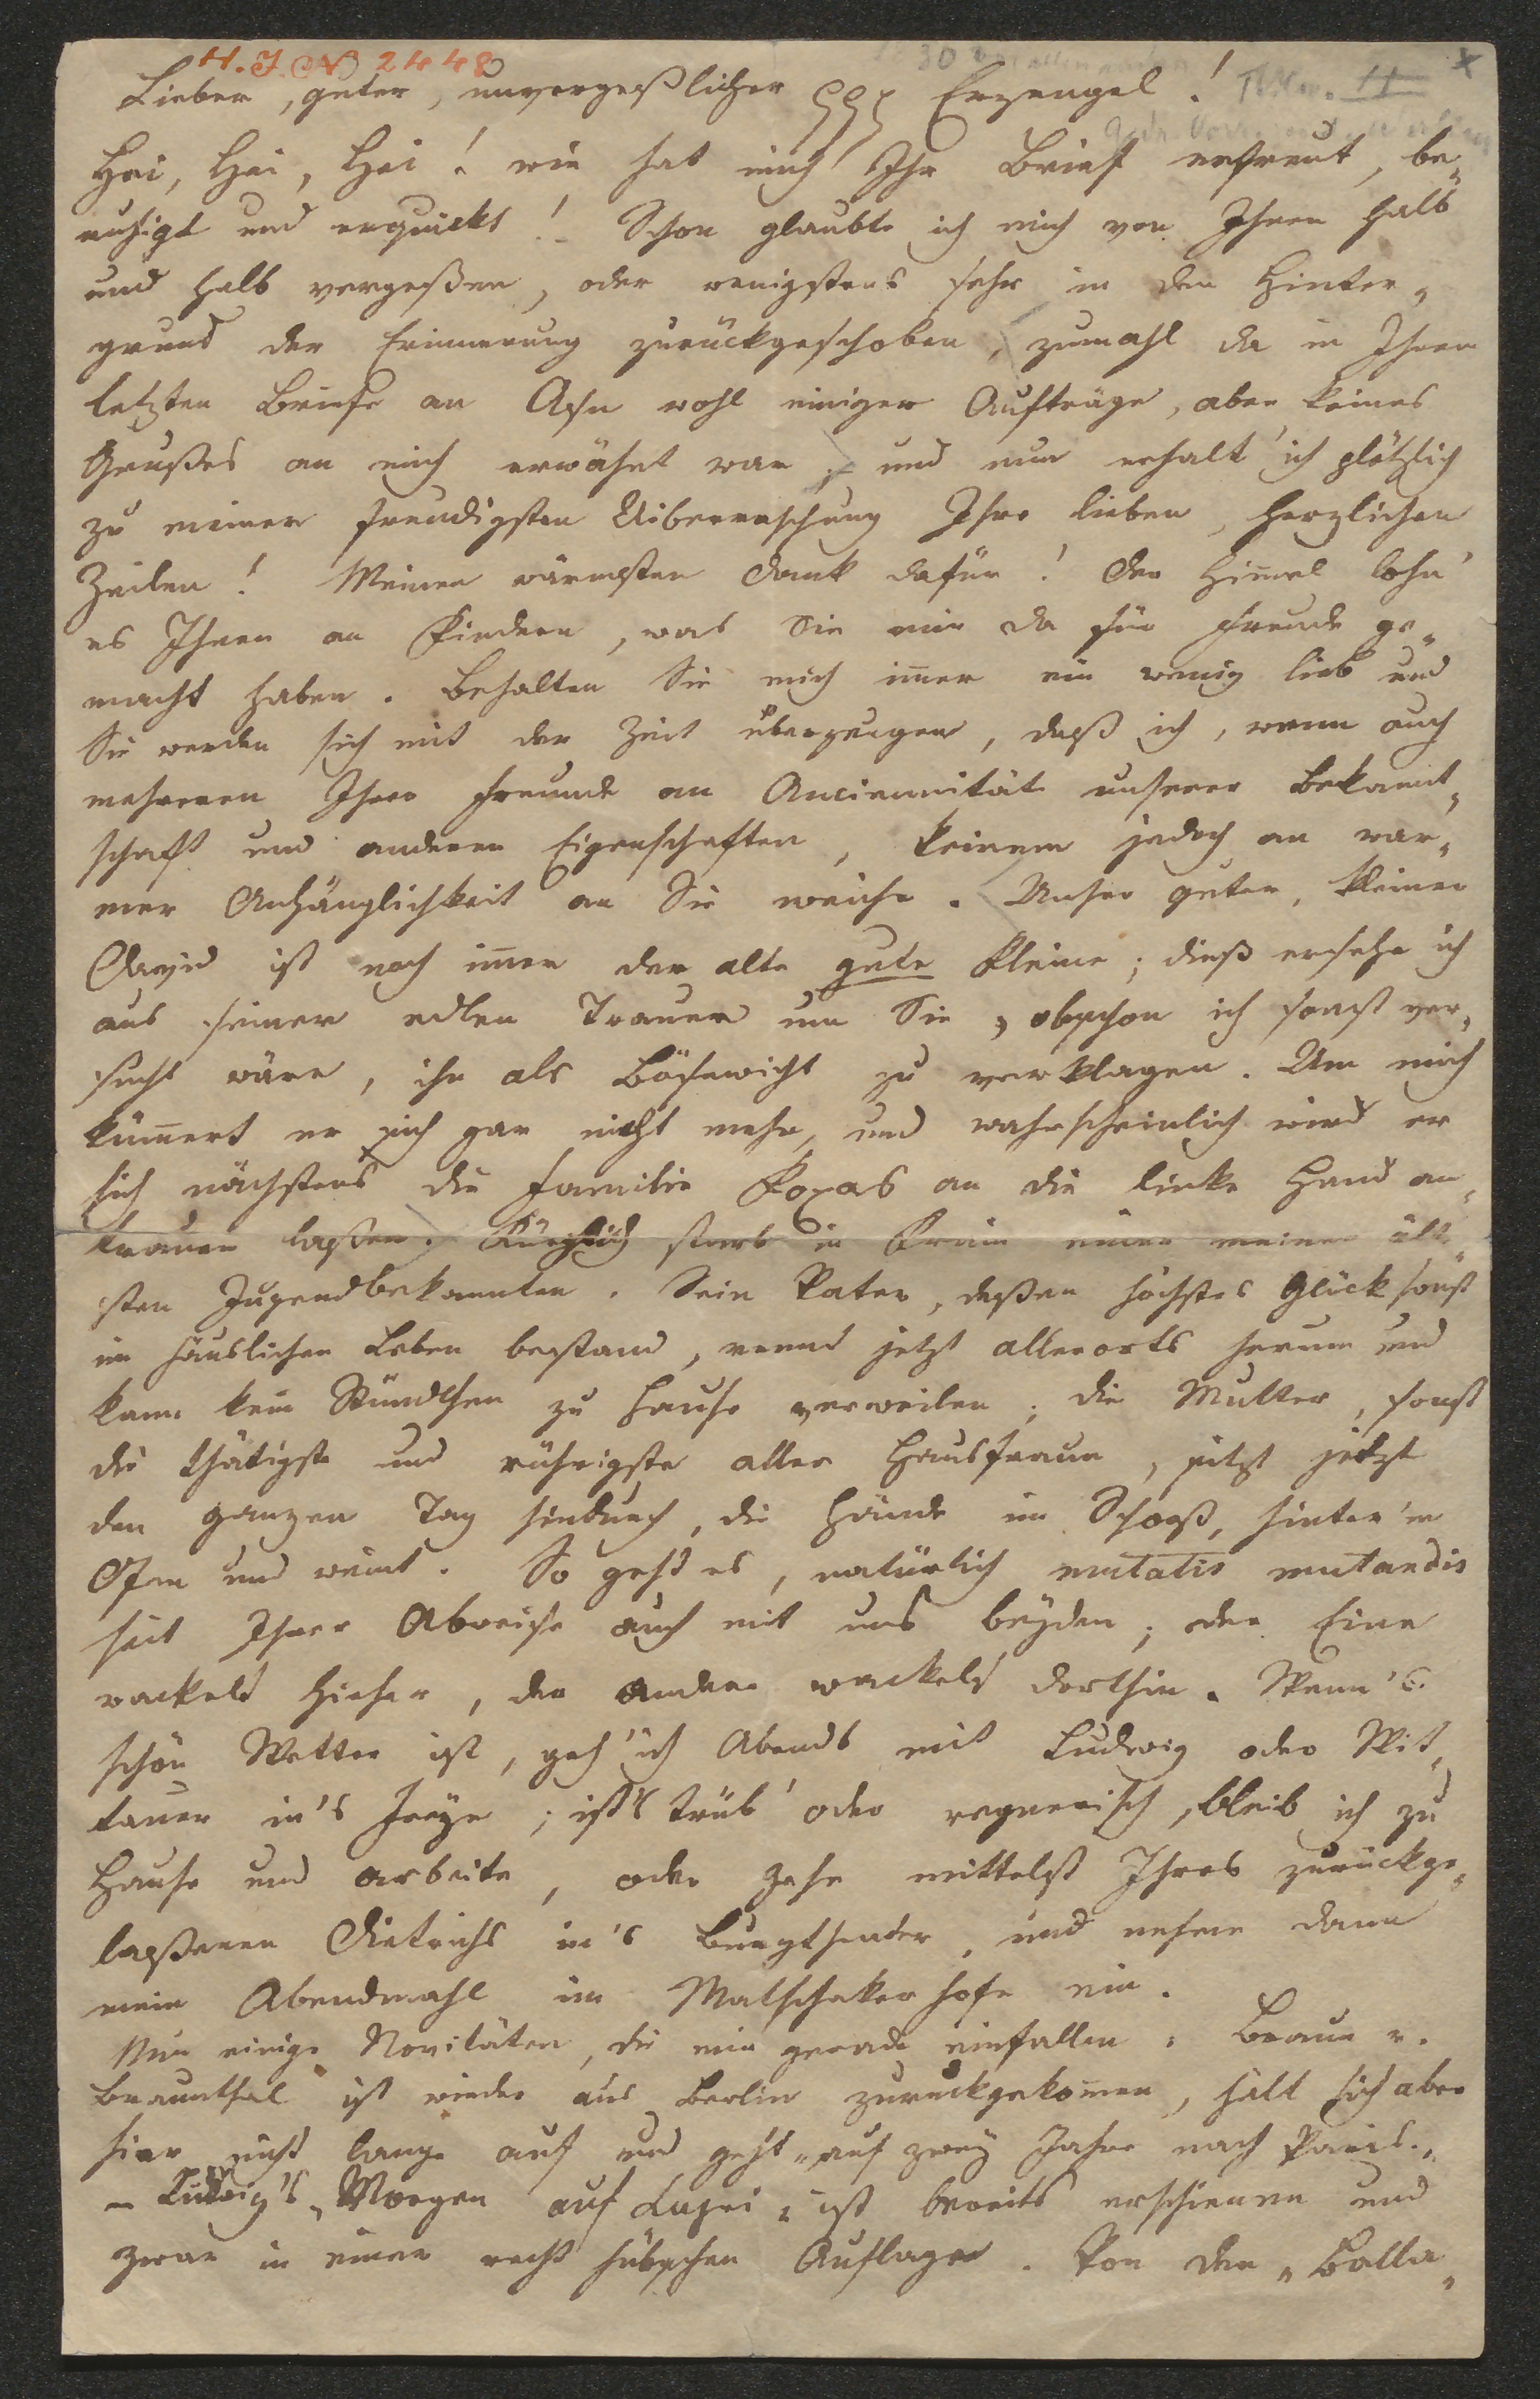 H. I. N 2448
Lieber, guter, unvergeßlicher Erzengel!
Hei, Hei, Hei! wie hat mich Ihr Brief erfreut, be-
ruhigt und erquickt! Schon glaubte ich mich von Ihnen halb
und halb vergeßen, oder wenigstens sehr in den Hinter-
grund der Erinnerung zurückgeschoben, zumahl da in Ihrem
letzten Briefe an wohl einiger Aufträge, aber keines
Grußes an mich erwähnt war; und nun erhalt' ich plötzlich
zu meiner freudigsten Uiberraschung Ihre lieben, herzlichen
Zeilen! Meinen wärmsten Dank dafür! Der Him̄el lohn'
es Ihnen an Kindern, was Sie mir da für Freude ge-
macht haben. Behalten Sie mich im̄er ein wenig lieb und
Sie werden sich mit der Zeit überzeugen, daß ich, wenn auch
mehreren Ihrer Freunde an Anciennität unserer Bekannt-
schaft und anderen Eigenschaften, keinem jedoch an war-
mer Anhänglichkeit an Sie weiche. Unser guter, kleiner
David ist noch im̄er der alte gute Kleine; dieß ersehe ich
aus seiner edlen Trauer um Sie, obschon ich sonst ver-
sucht wäre, ihn als Bösewicht zu verklagen. Um mich
küm̄ert er sich gar nicht mehr, und wahrscheinlich wird er
sich nächstens die Familie an die linke Hand an-
trauen laßen. Kürzlich starb in Krain einer meiner ält-
sten Jugendbekannten. Sein Vater, deßen höchstes Glück sonst
im häuslichen Leben bestand, rennt jetzt allerorts herum und
kann kein Stündchen zu Hause verweilen; die Mutter, sonst
die thätigste und rührigste aller Hausfrauen, sitzt jetzt
den ganzen Tag hindurch, die Hände im Schooß, hinter'm
Ofen und weint. So geht es, natürlich mutatis mutandis
seit Ihrer Abreise auch mit uns beyden; der Eine
wackelt hieher, der andere wackelt dorthin. Wenn's
schön Wetter ist, geh' ich Abends mit Ludwig oder Wit-
tauer in's Freye; ist's trüb' oder regnerisch, bleib ich zu
Hause und arbeite, oder gehe mittelst Ihres zurückge-
laßenen Dietrichs in's Burgtheater, und nehme dann
mein Abendmahl im Matschakerhofe ein.
Nun einige Novitäten, die mir gerade einfallen: Braun v.
Braunthal ist wieder aus Berlin zurückgekom̄en, hält sich aber
hier nicht lange auf und geht „auf zwey Jahre nach Paris."
– Ludwig's „Morgen auf Capri" ist bereits erschienen und
zwar in einer recht hübschen Auflage. Von den „Balla-